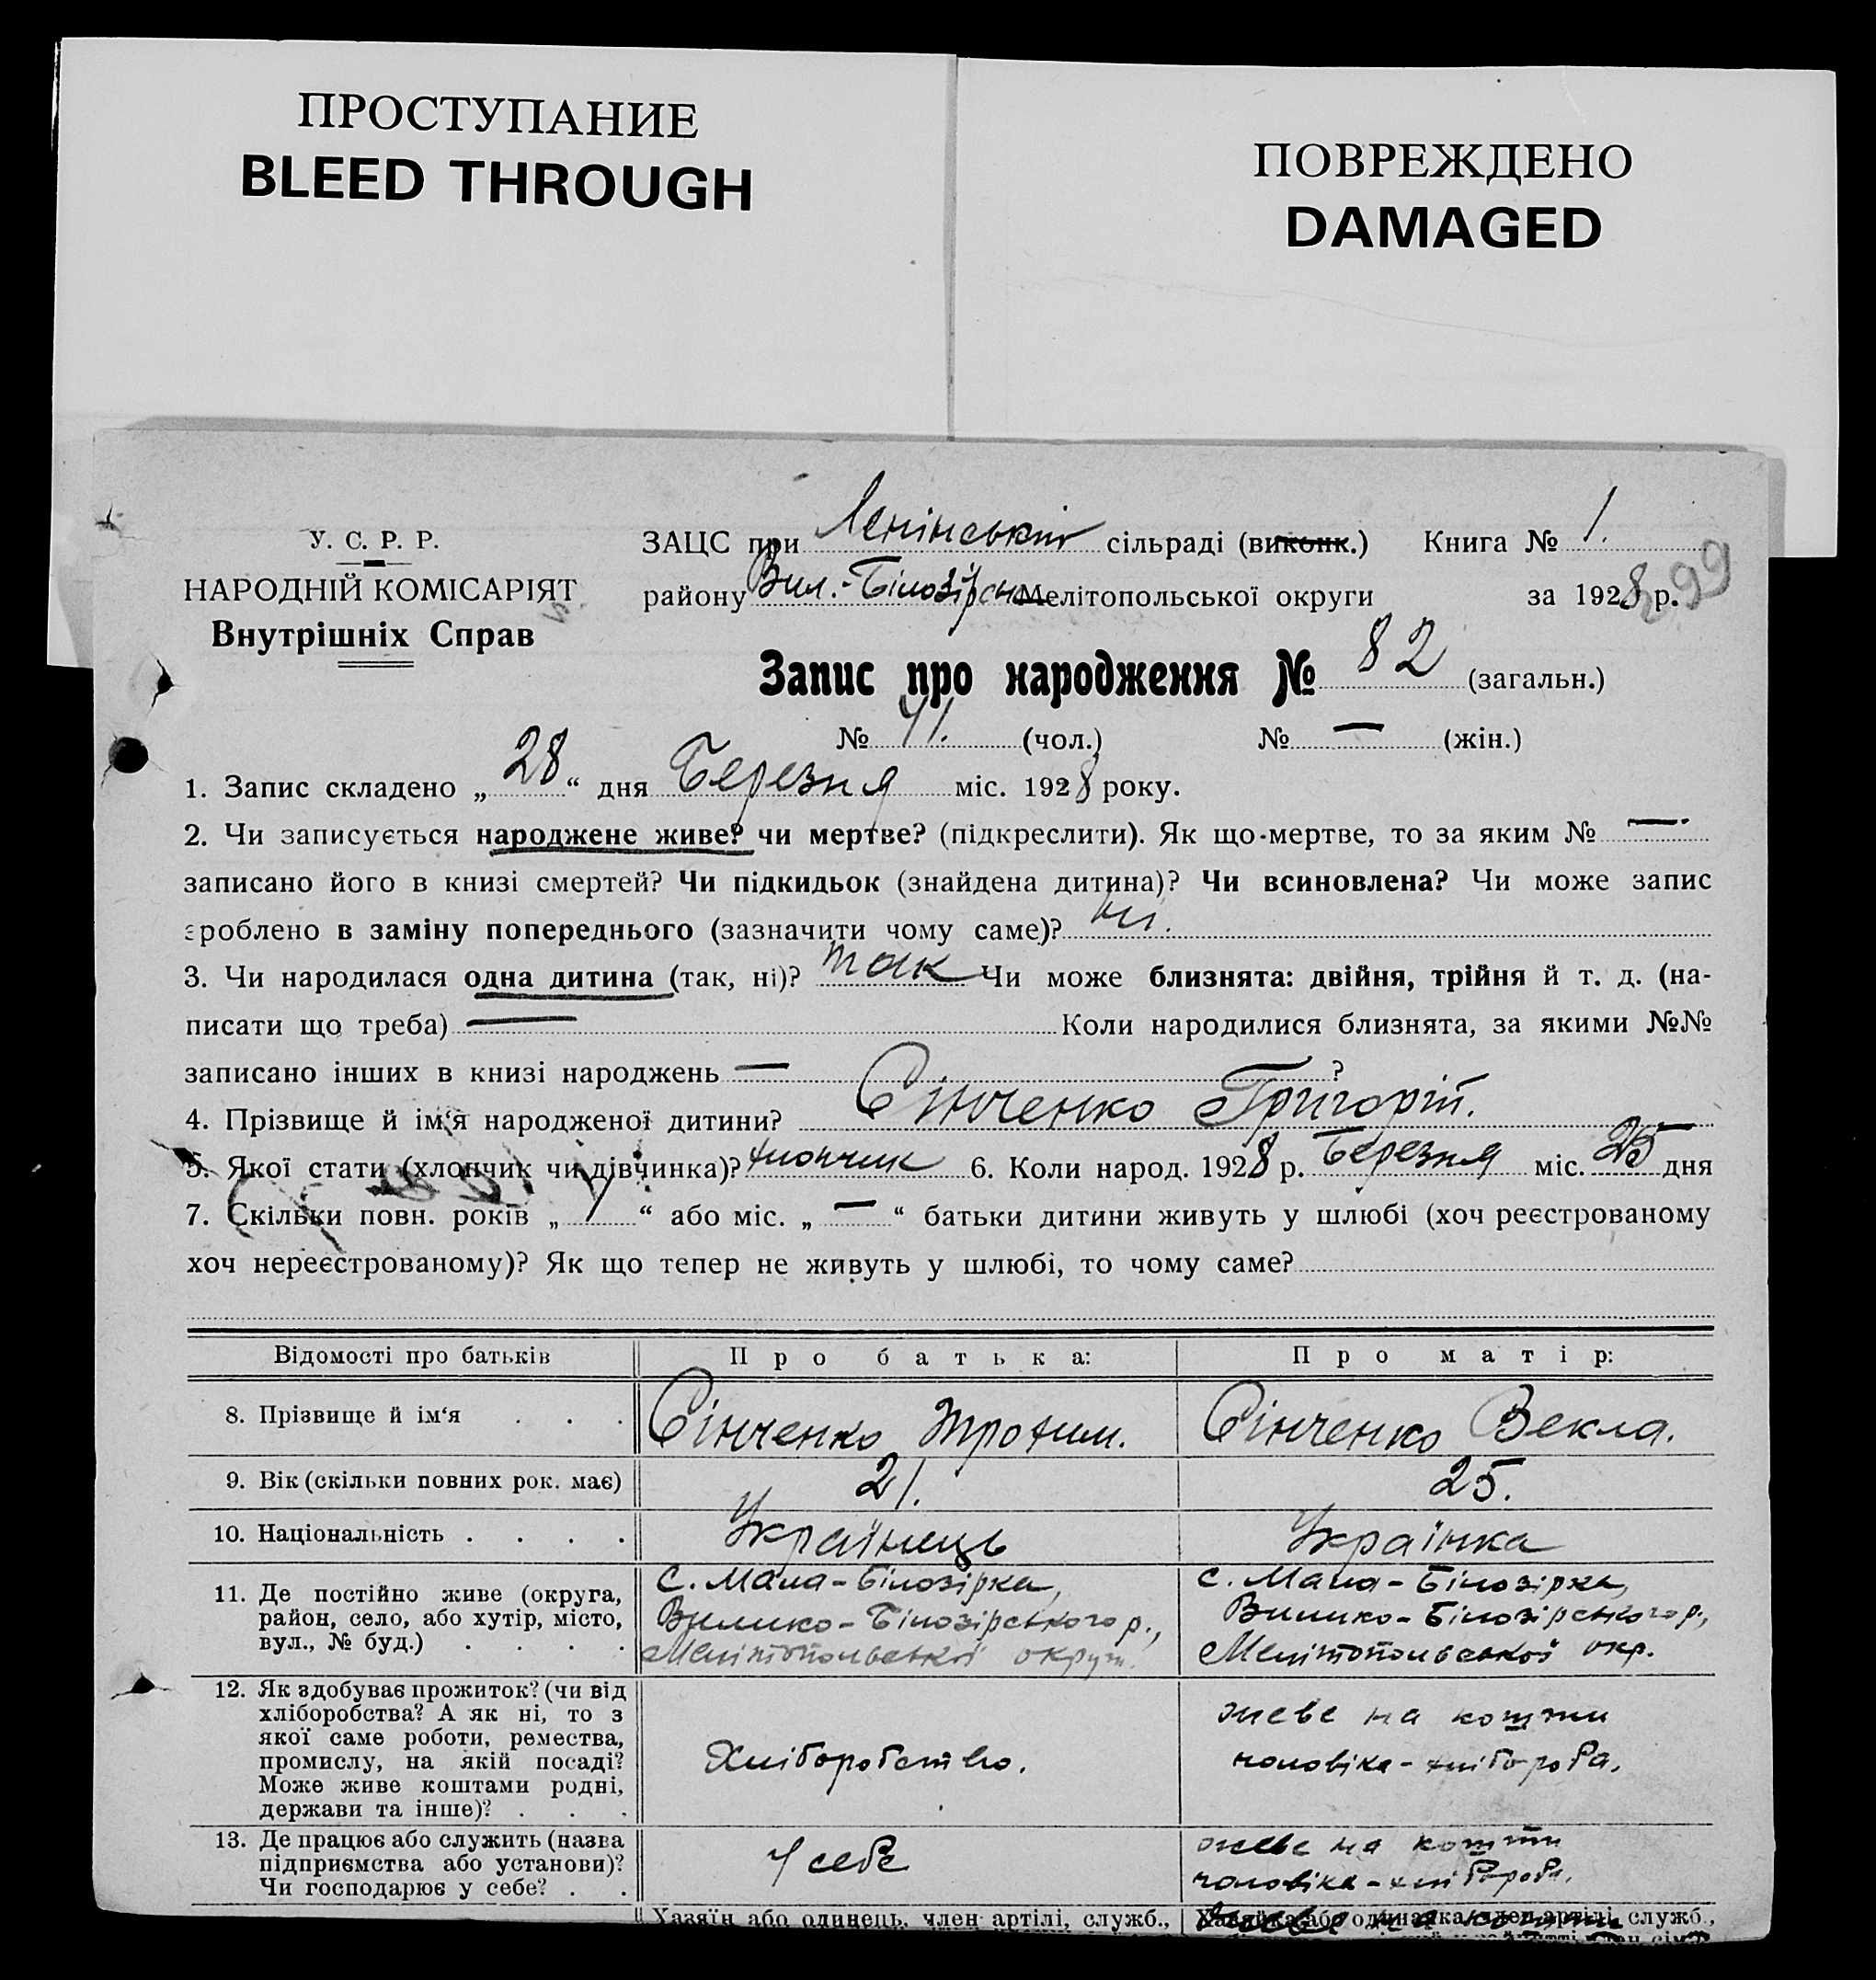 ПРОСТУПАНИЕ
BLEED THROUGH
ПОВРЕЖДЕНО
DAMAGED
У. С. Р. Р.
НАРОДНІЙ КОМІСАРІЯТ
Внутрішніх Справ
ЗАЦС при Ленінській сільраді (виконк.) Книга № 1.
району Вил.-Білозірськ Мелітопольської округи за 1928 р.
99
Запис про народження № 82 (загальн.)
№ 41. (чол.) № — (жін.)
1. Запис складено „28“ дня Березня міс. 1928 року.
2. Чи записується народжене живе? чи мертве? (підкреслити). Як що-мертве, то за яким № —
записано його в книзі смертей? Чи підкидьок (знайдена дитина)? Чи всиновлена? Чи може запис
зроблено в заміну попереднього (зазначити чому саме)? ні.
3. Чи народилася одна дитина (так, ні)? так Чи може близнята: двійня, трійня й т. д. (на-
писати що треба) — Коли народилися близнята, за якими №№
записано інших в книзі народжень — ?
4. Прізвище й ім'я народженої дитини? Сінченко Григорій.
5. Якої стати (хлопчик чи дівчинка)? хлопчик 6. Коли народ. 1928 р. Березня міс. 25 дня
7. Скільки повн. років „1“ або міс. „—“ батьки дитини живуть у шлюбі (хоч реєстрованому
хоч нереєстрованому)? Як що тепер не живуть у шлюбі, то чому саме?
Відомості про батьків Про батька: Про матір:
8. Прізвище й ім'я . . . Сінченко Трохим. Сінченко Векла.
9. Вік (скільки повних рок. має) 21. 25.
10. Національність . . . . Українець Українка
11. Де постійно живе (округа,
район, село, або хутір, місто,
вул., № буд.) . . . .
с. Мала-Білозірка,
Вилико-Білозірського р.,
Мелітопольської округи.
с. Мала-Білозірка,
Вилико-Білозірського р.,
Мелітопольської окр.
12. Як здобуває прожиток? (чи від
хліборобства? А як ні, то з
якої саме роботи, ремества,
промислу, на якій посаді?
Може живе коштами родні,
держави та інше)? . . .
Хліборобство.
живе на кошти
чоловіка-хлібороба.
13. Де працює або служить (назва
підприємства або установи)?
Чи господарює у себе? . .
У себе
живе на кошти
чоловіка-хлібороба.
Хазяїн або одинець, член артілі, служб., Хазяйка або одиначка, член артілі, служб.,